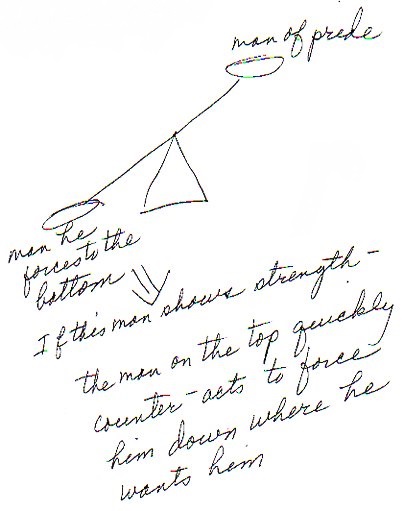 man of prede
man he
forces to the
bottom
If this man shows strength -
the man on the top quickly
counter-acts to force
him down where he
wants him